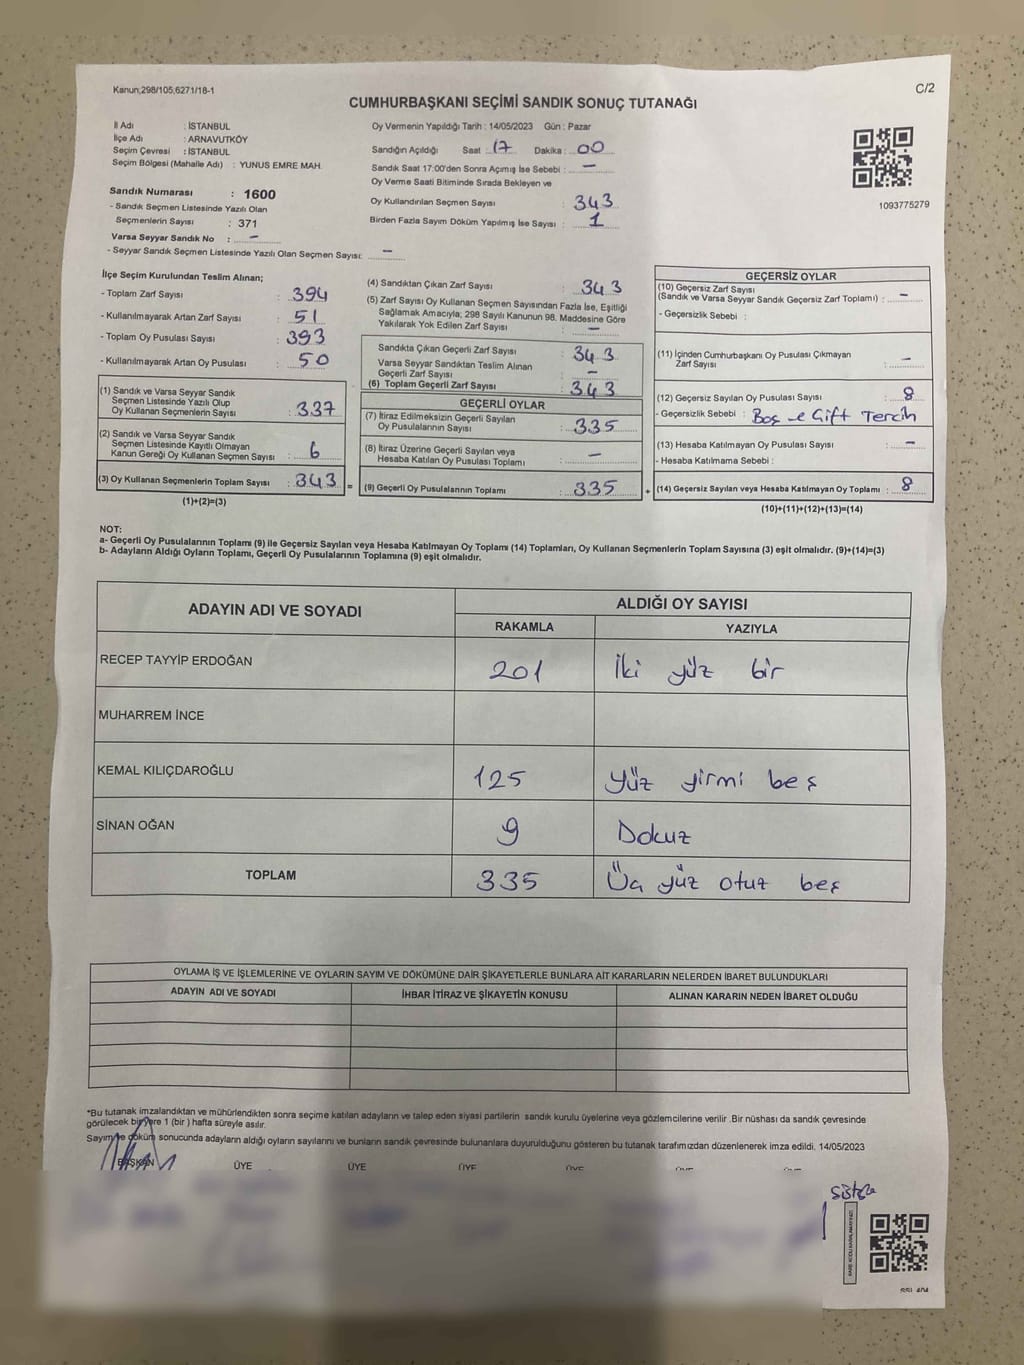 Kanun;298/105,6271/18-1
C/2
CUMHURBAŞKANI SEÇİMİ SANDIK SONUÇ TUTANAĞI
İl Adı : İSTANBUL
İlçe Adı : ARNAVUTKÖY
Seçim Çevresi : İSTANBUL
Seçim Bölgesi (Mahalle Adı) : YUNUS EMRE MAH.
Sandık Numarası : 1600
- Sandık Seçmen Listesinde Yazılı Olan
Seçmenlerin Sayısı : 371
Varsa Seyyar Sandık No : –
- Seyyar Sandık Seçmen Listesinde Yazılı Olan Seçmen Sayısı: –
Oy Vermenin Yapıldığı Tarih : 14/05/2023 Gün : Pazar
Sandığın Açıldığı Saat : 17 Dakika : 00
Sandık Saat 17:00'den Sonra Açımış İse Sebebi : –
Oy Verme Saati Bitiminde Sırada Bekleyen ve
Oy Kullandırılan Seçmen Sayısı : 343
Birden Fazla Sayım Döküm Yapılmış İse Sayısı : 1
1093775279
İlçe Seçim Kurulundan Teslim Alınan;
- Toplam Zarf Sayısı : 394
- Kullanılmayarak Artan Zarf Sayısı : 51
- Toplam Oy Pusulası Sayısı : 393
- Kullanılmayarak Artan Oy Pusulası : 50
(1) Sandık ve Varsa Seyyar Sandık
Seçmen Listesinde Yazılı Olup
Oy Kullanan Seçmenlerin Sayısı : 337
(2) Sandık ve Varsa Seyyar Sandık
Seçmen Listesinde Kayıtlı Olmayan
Kanun Gereği Oy Kullanan Seçmen Sayısı : 6
(3) Oy Kullanan Seçmenlerin Toplam Sayısı : 343 =
(1)+(2)=(3)
(4) Sandıktan Çıkan Zarf Sayısı : 343
(5) Zarf Sayısı Oy Kullanan Seçmen Sayısından Fazla İse, Eşitliği
Sağlamak Amacıyla, 298 Sayılı Kanunun 98. Maddesine Göre
Yakılarak Yok Edilen Zarf Sayısı : –
Sandıkta Çıkan Geçerli Zarf Sayısı : 343
Varsa Seyyar Sandıktan Teslim Alınan
Geçerli Zarf Sayısı : –
(6) Toplam Geçerli Zarf Sayısı : 343
GEÇERLİ OYLAR
(7) İtiraz Edilmeksizin Geçerli Sayılan
Oy Pusulalarının Sayısı : 335
(8) İtiraz Üzerine Geçerli Sayılan veya
Hesaba Katılan Oy Pusulası Toplamı : –
(9) Geçerli Oy Pusulalarının Toplamı : 335 +
GEÇERSİZ OYLAR
(10) Geçersiz Zarf Sayısı
(Sandık ve Varsa Seyyar Sandık Geçersiz Zarf Toplamı) : –
- Geçersizlik Sebebi :
(11) İçinden Cumhurbaşkanı Oy Pusulası Çıkmayan
Zarf Sayısı : –
(12) Geçersiz Sayılan Oy Pusulası Sayısı : 8
- Geçersizlik Sebebi : Boş ve Çift Tercih
(13) Hesaba Katılmayan Oy Pusulası Sayısı : –
- Hesaba Katılmama Sebebi :
(14) Geçersiz Sayılan veya Hesaba Katılmayan Oy Toplamı : 8
(10)+(11)+(12)+(13)=(14)
NOT:
a- Geçerli Oy Pusulalarının Toplamı (9) ile Geçersiz Sayılan veya Hesaba Katılmayan Oy Toplamı (14) Toplamları, Oy Kullanan Seçmenlerin Toplam Sayısına (3) eşit olmalıdır. (9)+(14)=(3)
b- Adayların Aldığı Oyların Toplamı, Geçerli Oy Pusulalarının Toplamına (9) eşit olmalıdır.
ADAYIN ADI VE SOYADI ALDIĞI OY SAYISI
RAKAMLA YAZIYLA
RECEP TAYYİP ERDOĞAN 201 İki yüz bir
MUHARREM İNCE
KEMAL KILIÇDAROĞLU 125 Yüz yirmi beş
SİNAN OĞAN 9 Dokuz
TOPLAM 335 Üç yüz otuz beş
OYLAMA İŞ VE İŞLEMLERİNE VE OYLARIN SAYIM VE DÖKÜMÜNE DAİR ŞİKAYETLERLE BUNLARA AİT KARARLARIN NELERDEN İBARET BULUNDUKLARI
ADAYIN ADI VE SOYADI İHBAR İTİRAZ VE ŞİKAYETİN KONUSU ALINAN KARARIN NEDEN İBARET OLDUĞU
*Bu tutanak imzalandıktan ve mühürlendikten sonra seçime katılan adayların ve talep eden siyasi partilerin sandık kurulu üyelerine veya gözlemcilerine verilir. Bir nüshası da sandık çevresinde
görülecek bir yere 1 (bir) hafta süreyle asılır.
Sayım ve döküm sonucunda adayların aldığı oyların sayılarını ve bunların sandık çevresinde bulunanlara duyurulduğunu gösteren bu tutanak tarafımızdan düzenlenerek imza edildi. 14/05/2023
BAŞKAN ÜYE ÜYE ÜYE ÜYE ÜYE